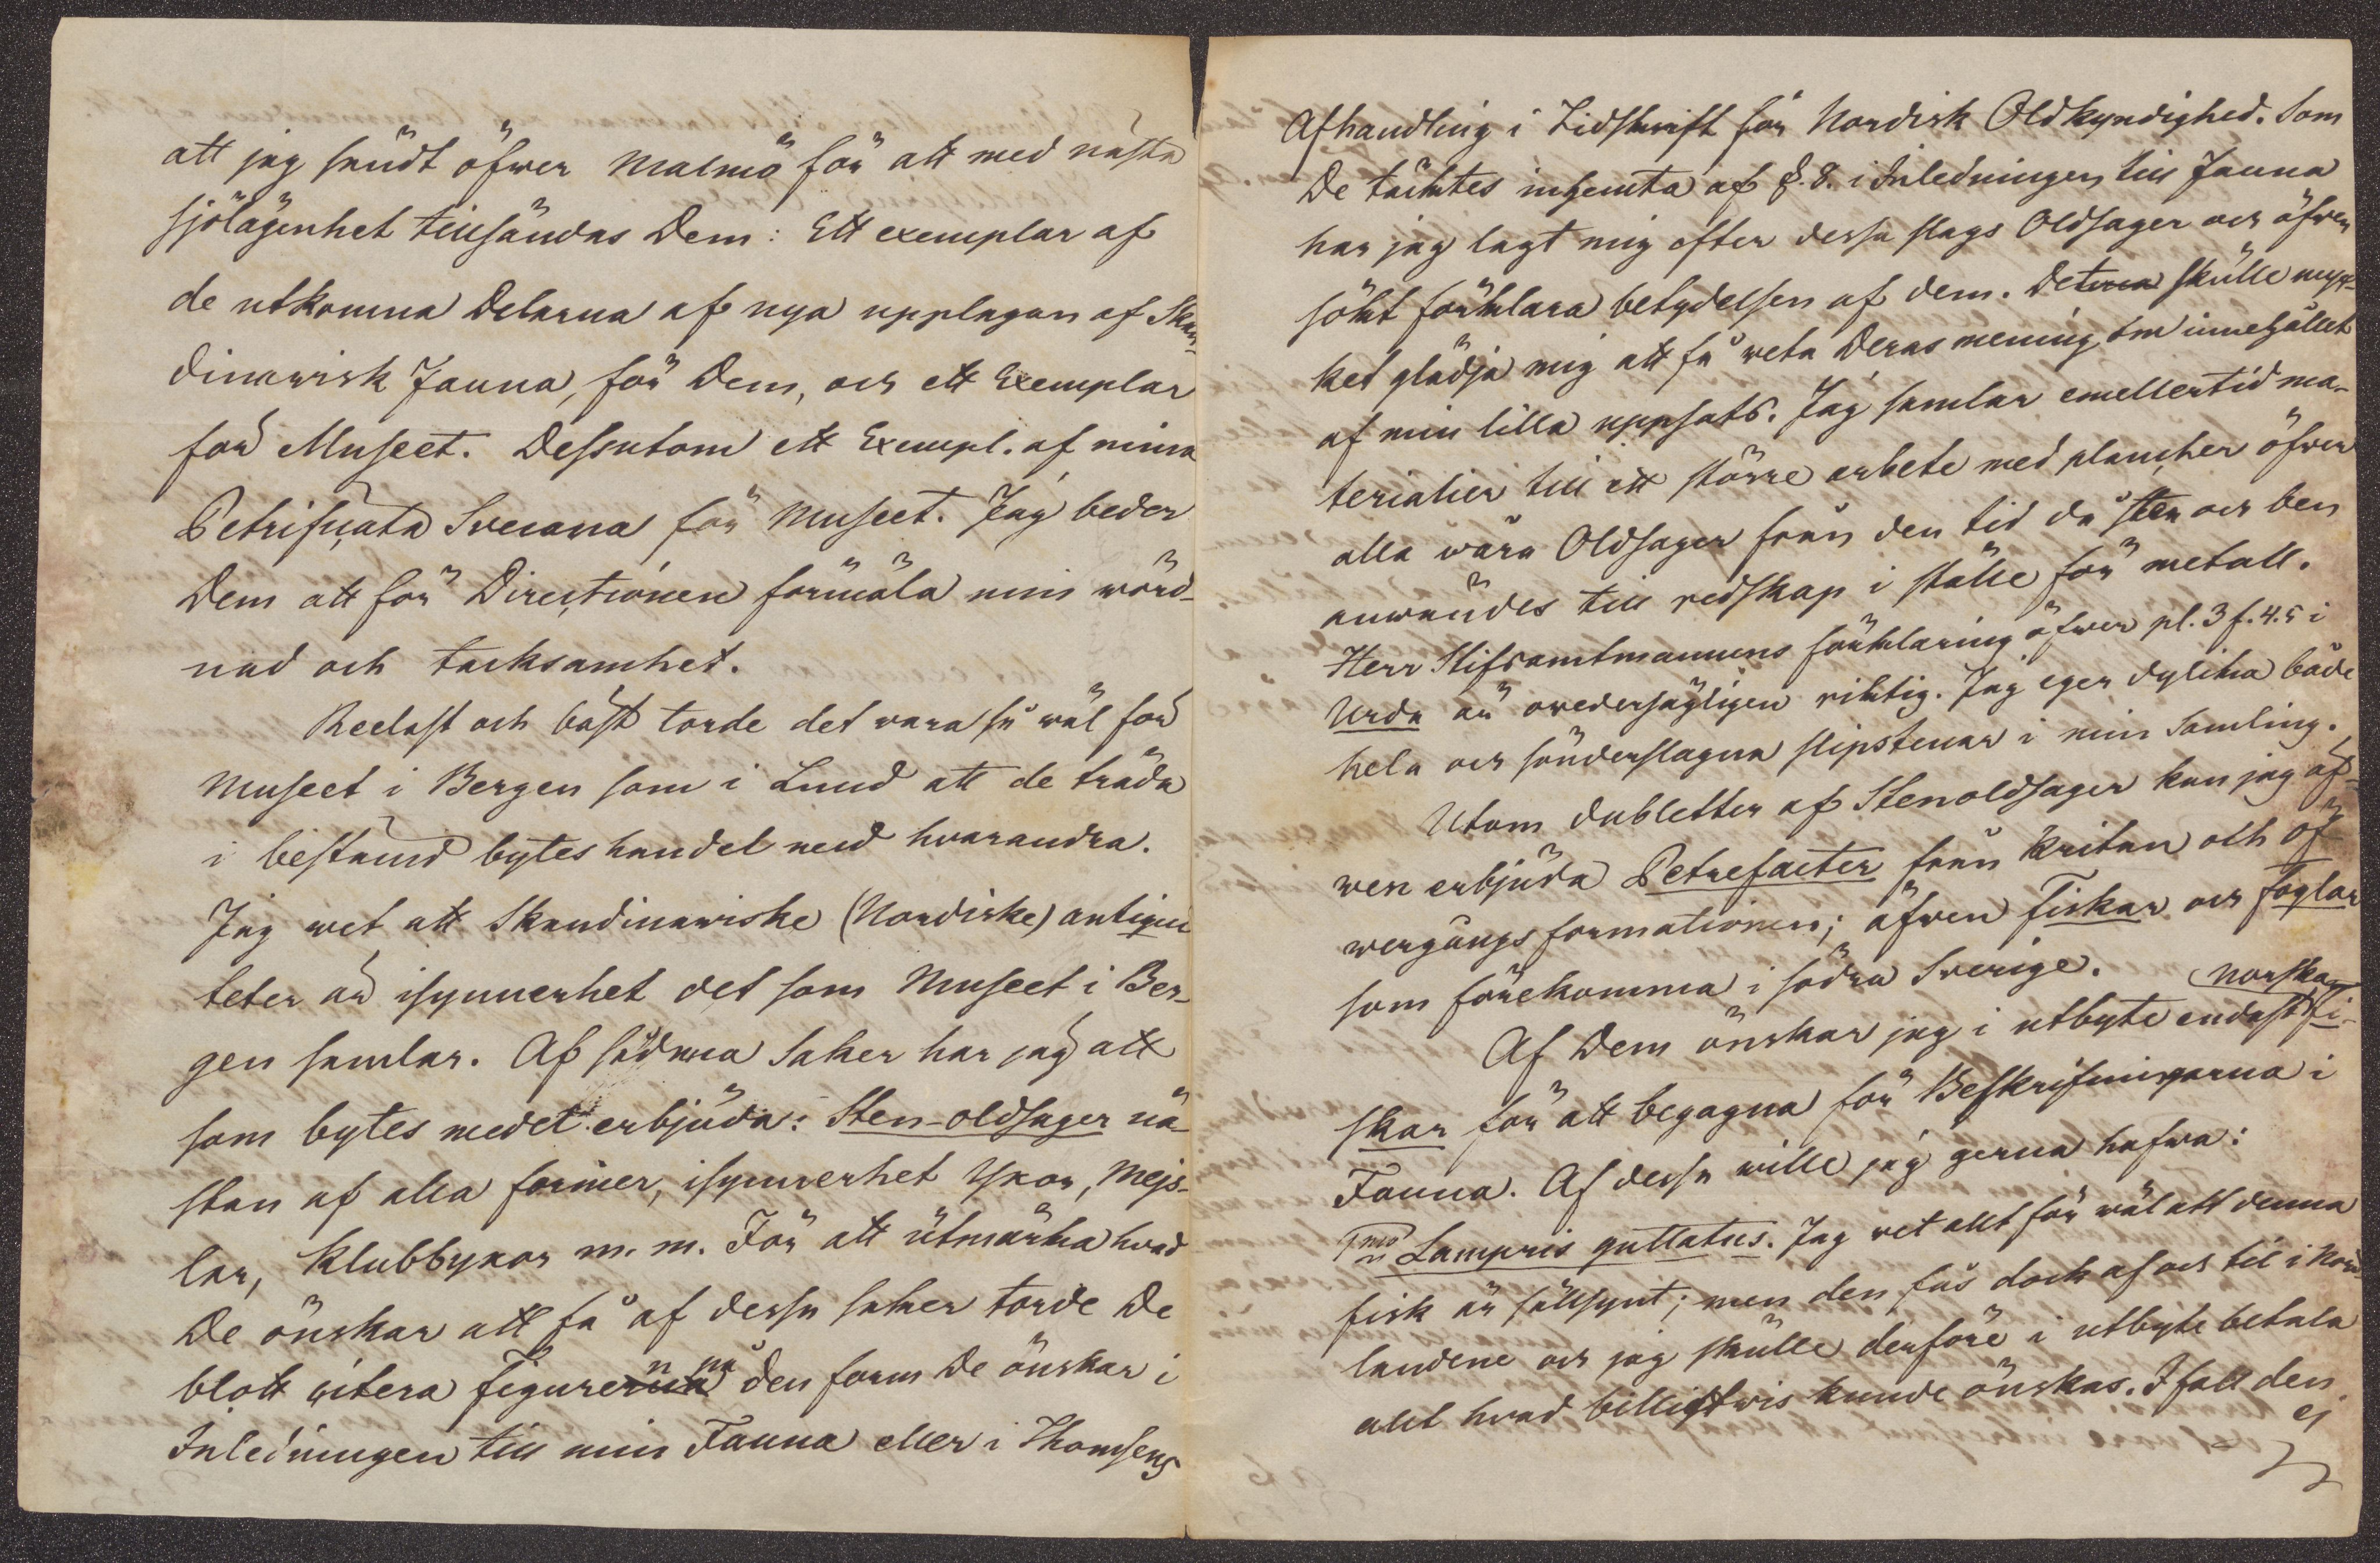 att jag sändt öfwer Malmö för att med nästa
sjölägenhet tillsändas Dem: Ett exemplar af
de utkomna Delarna af nya upplagan af Skan-
dinavisk Fauna, för Dem, och ett Exemplar
för Museet. Dessutom ett Exempl. af mina
Petrificata Svecana för Museet. Jag beder
Dem att för Directionen förmäla min wörd-
nad och tacksamhet.
Reelast och bäst torde det vara så wäl för
Museet i Bergen som i Lund att de träda
i bestämd byteshandel med hvarandra.
Jag wet att Skandinaviske (Nordiske) antiqui
teter är isynnerhet det som Museet i Ber-
gen samlar. Af sådana saker har jag att
som bytes medel erbjuda: Sten-oldsager nä-
stan af alla former, isynnerhet Yxor, Mejs-
lar, Klubbyxor m. m. För att utmärka hvad
De önskar att få af dessa saker torde De
n på
blott citera Figurerna den form De önskar i
Inledningen till min Fauna eller i Thomsens
Afhandling i Tidskrift för Nordisk Oldkyndighed. Som
De täcktes inhemta af §. 8. i Inledningen till Fauna
har jag lagt mig efter dessa slags Oldsager och äfwen
sökt förklara betydelsen af dem. Det skulle myc-
ket glädja mig att få weta Deras mening om innehållet
af min lilla uppsats. Jag samlar emellertid ma-
terialier till ett större arbete med plancher öfwer
alla wåra Oldsager från den tid då sten och ben
anwändes till redskap i ställe för metall.
Herr Stiftsamtmannens förklaring öfwer pl. 3 f. 4. 5 i
Urda är owedersägligen riktig. Jag eger dylika både
hela och sönderslagna slipstenar i min Samling.
Utom dubletter af Stenoldsager kan jag äf-
wen erbjuda Petrefacter från Kritan och öf-
wergångsformationen; äfwen Fiskar och foglar
som förekomma i södra Sverige.
norska
Af Dem önskar jag i utbyte endast fi-
skar för att begagna för Beskrifningarna i
Fauna. Af dessa wille jag gerna hafwa:
1mo Lampris guttatus. Jag vet allt för wäl att denna
fisk är sällsynt; men den fås dock af och til i Nord-
landene och jag skulle derföre i utbyte betala
allt hvad billigtwis kunde önskas. I fall den
ej